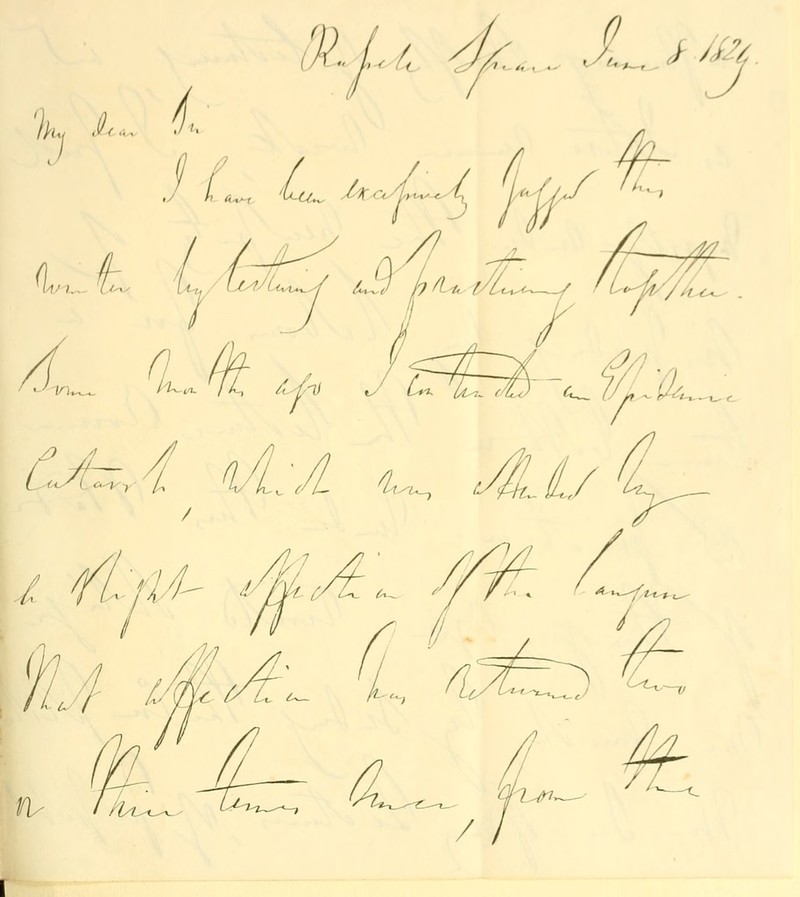 Russell Square June 8. 1829.
My dear Sir
I have been excessively fagged this
winter by lecturing and practising together.
Some months ago I contracted an Epidemic
Catarrh, which was attended by
a slight affection of the larynx
That affection has returned two
or three times since, from the